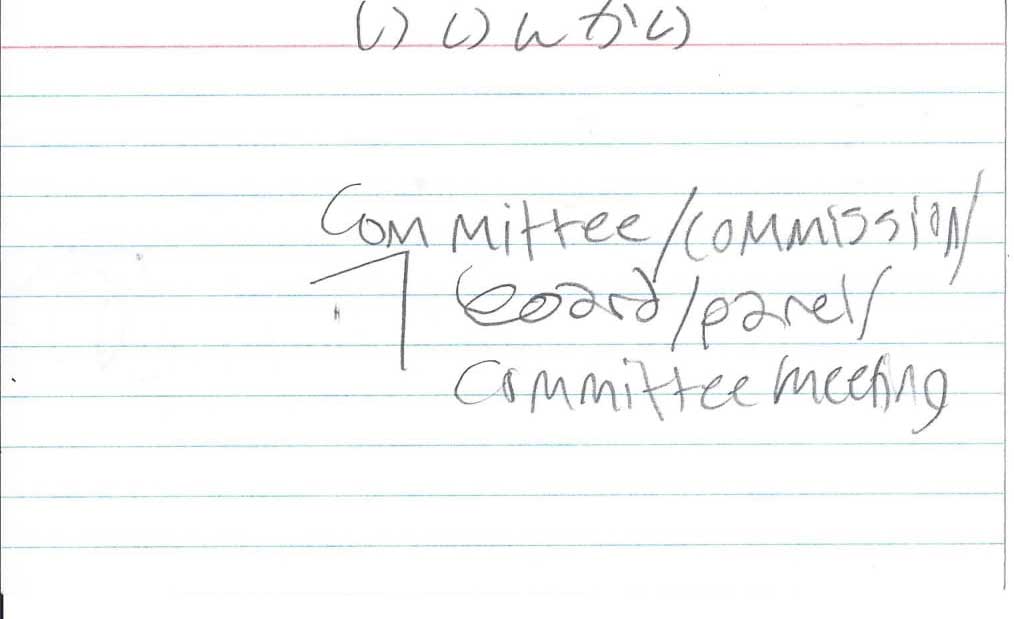 いいんかい
Committee/commission/
board/panel/
committee meeting